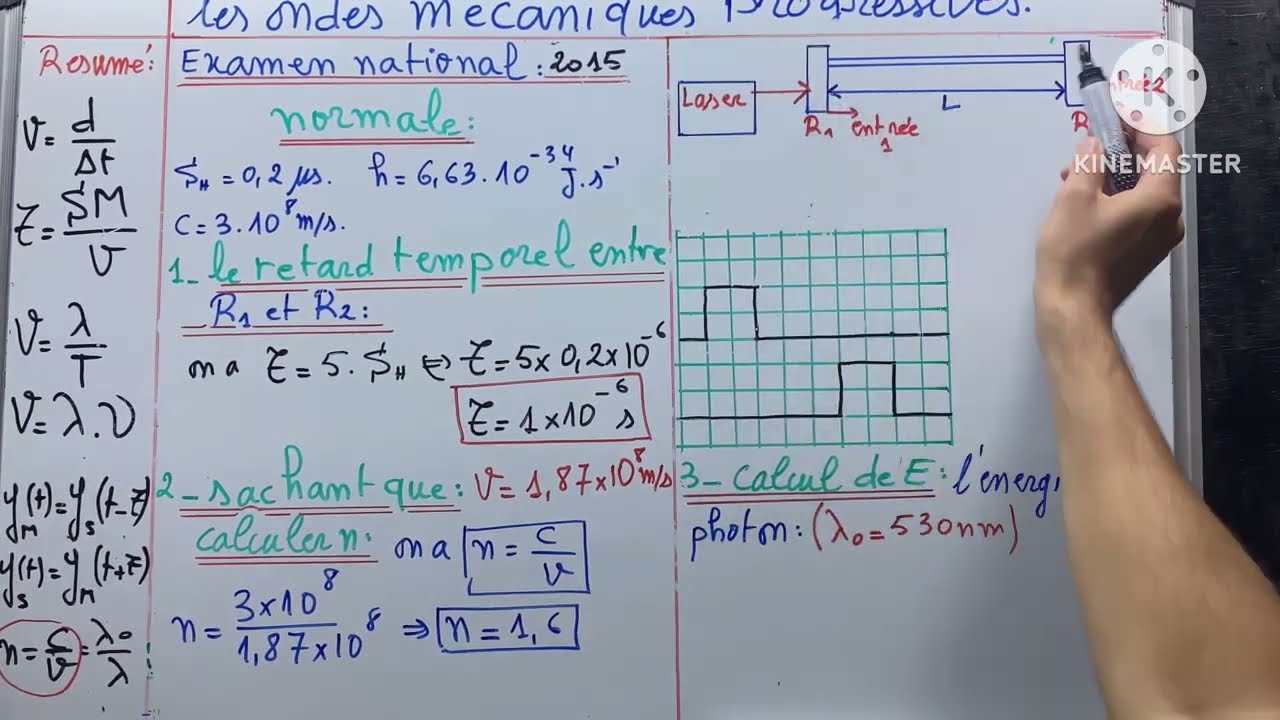 les ondes mecaniques Progressives.
Resumé:
V = d/Δt
τ = SM/V
V = λ/T
V = λ.ν
y_M(t) = y_S(t-τ)
y_S(t) = y_M(t+τ)
n = c/v = λ₀/λ
Examen national : 2015
normale:
S_H = 0,2 μs. h = 6,63.10⁻³⁴ J.s⁻¹
C = 3.10⁸ m/s.
1_ le retard temporel entre
R₁ et R₂:
on a τ = 5. S_H ⇔ τ = 5 x 0,2 x 10⁻⁶
τ = 1 x 10⁻⁶ s
2_ sachant que : V = 1,87 x 10⁸ m/s
calculer n: on a n = c/v
n = 3 x 10⁸ / 1,87 x 10⁸ ⇒ n = 1,6
Lasser
R₁ entrée 1
L
R
2
KINEMASTER
3_ calcul de E : l'énergi
photon : (λ₀ = 530 nm)